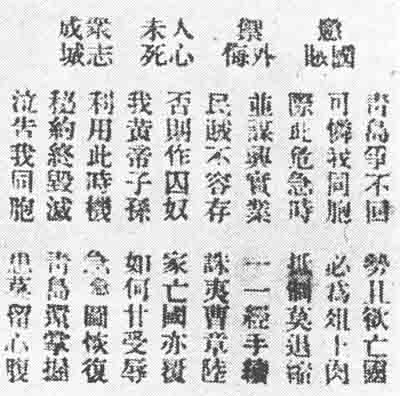 懲國賊
禦外侮
人心未死
眾志成城
青島爭不回 勢且欲亡國
可憐我同胞 必為俎上肉
際此危急時 抵制莫退縮
並謀興實業 一一經手續
民賊不容存 誅夷曹章陸
否則作囚奴 家亡國亦覆
我黃帝子孫 如何甘受辱
利用此時機 急急圖恢復
秘約終毀滅 青島還掌握
泣告我同胞 患莫留心腹